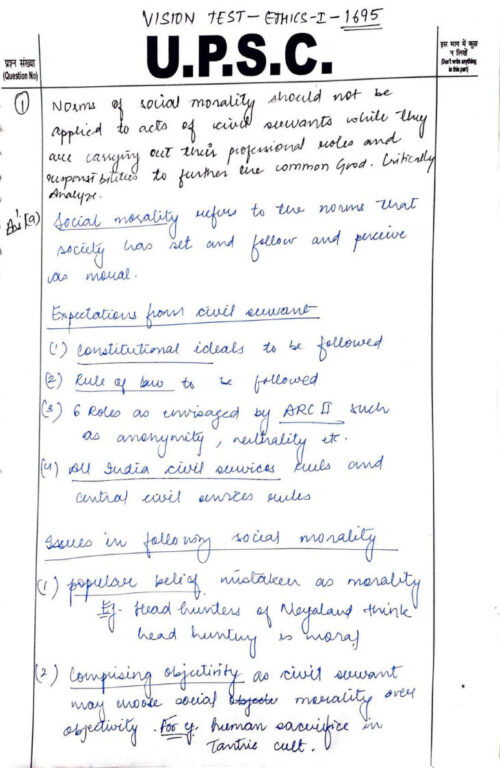 VISION TEST - ETHICS-I - 1695
प्रश्न संख्या
(Question No)
U.P.S.C.
इस भाग में कुछ
न लिखें
(Don't write anything
in this part)
(1) Norms of social morality should not be
applied to acts of civil servants while they
are carrying out their professional roles and
responsibilities to further the common Good. Critically
Analyze.
Ans 1.(a) Social morality refers to the norms that
society has set and follow and perceive
as moral.
Expectations from civil servant
(1) Constitutional ideals to be followed
(2) Rule of law to be followed
(3) 6 Roles as envisaged by ARC II such
as anonymity, neutrality etc.
(4) All India civil services rules and
central civil services rules
Issues in following social morality
(1) popular belief mistaken as morality
Eg. Head hunters of Nagaland think
head hunting is moral
(2) Comprising objectivity as civil servant
may choose social morality over
objectivity. For eg. human sacrifice in
Tantric cult.